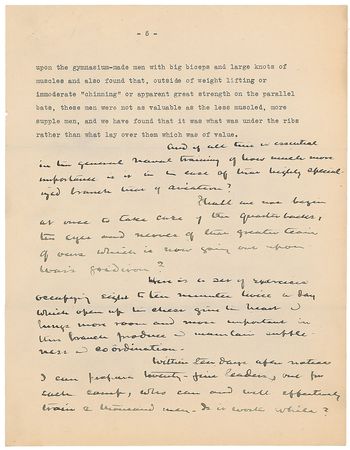 - 5 -
upon the gymnasium-made men with big biceps and large knots of
muscles and also found that, outside of weight lifting or
immoderate "chinning" or apparent great strength on the parallel
bats, these men were not as valuable as the less muscled, more
supple men, and we have found that it was what was under the ribs
rather than what lay over them which was of value.
And if all this is essential
in the general naval training of how much more
importance is it in the case of this highly special-
ized branch that of aviation?
Shall we not begin
at once to take care of the quarterbacks,
the eyes and nerves of this greater team
of ours which is now going out upon
War's gridiron?
Here is a set of exercises
occupying eight to ten minutes twice a day
which open up the chest give the heart &
lungs more room and more important in
this branch produce & maintain supple-
ness & coordination.
Within ten days after notice
I can prepare twenty-five leaders, one for
each camp, who can and will effectively
train a thousand men. Is it worth while?